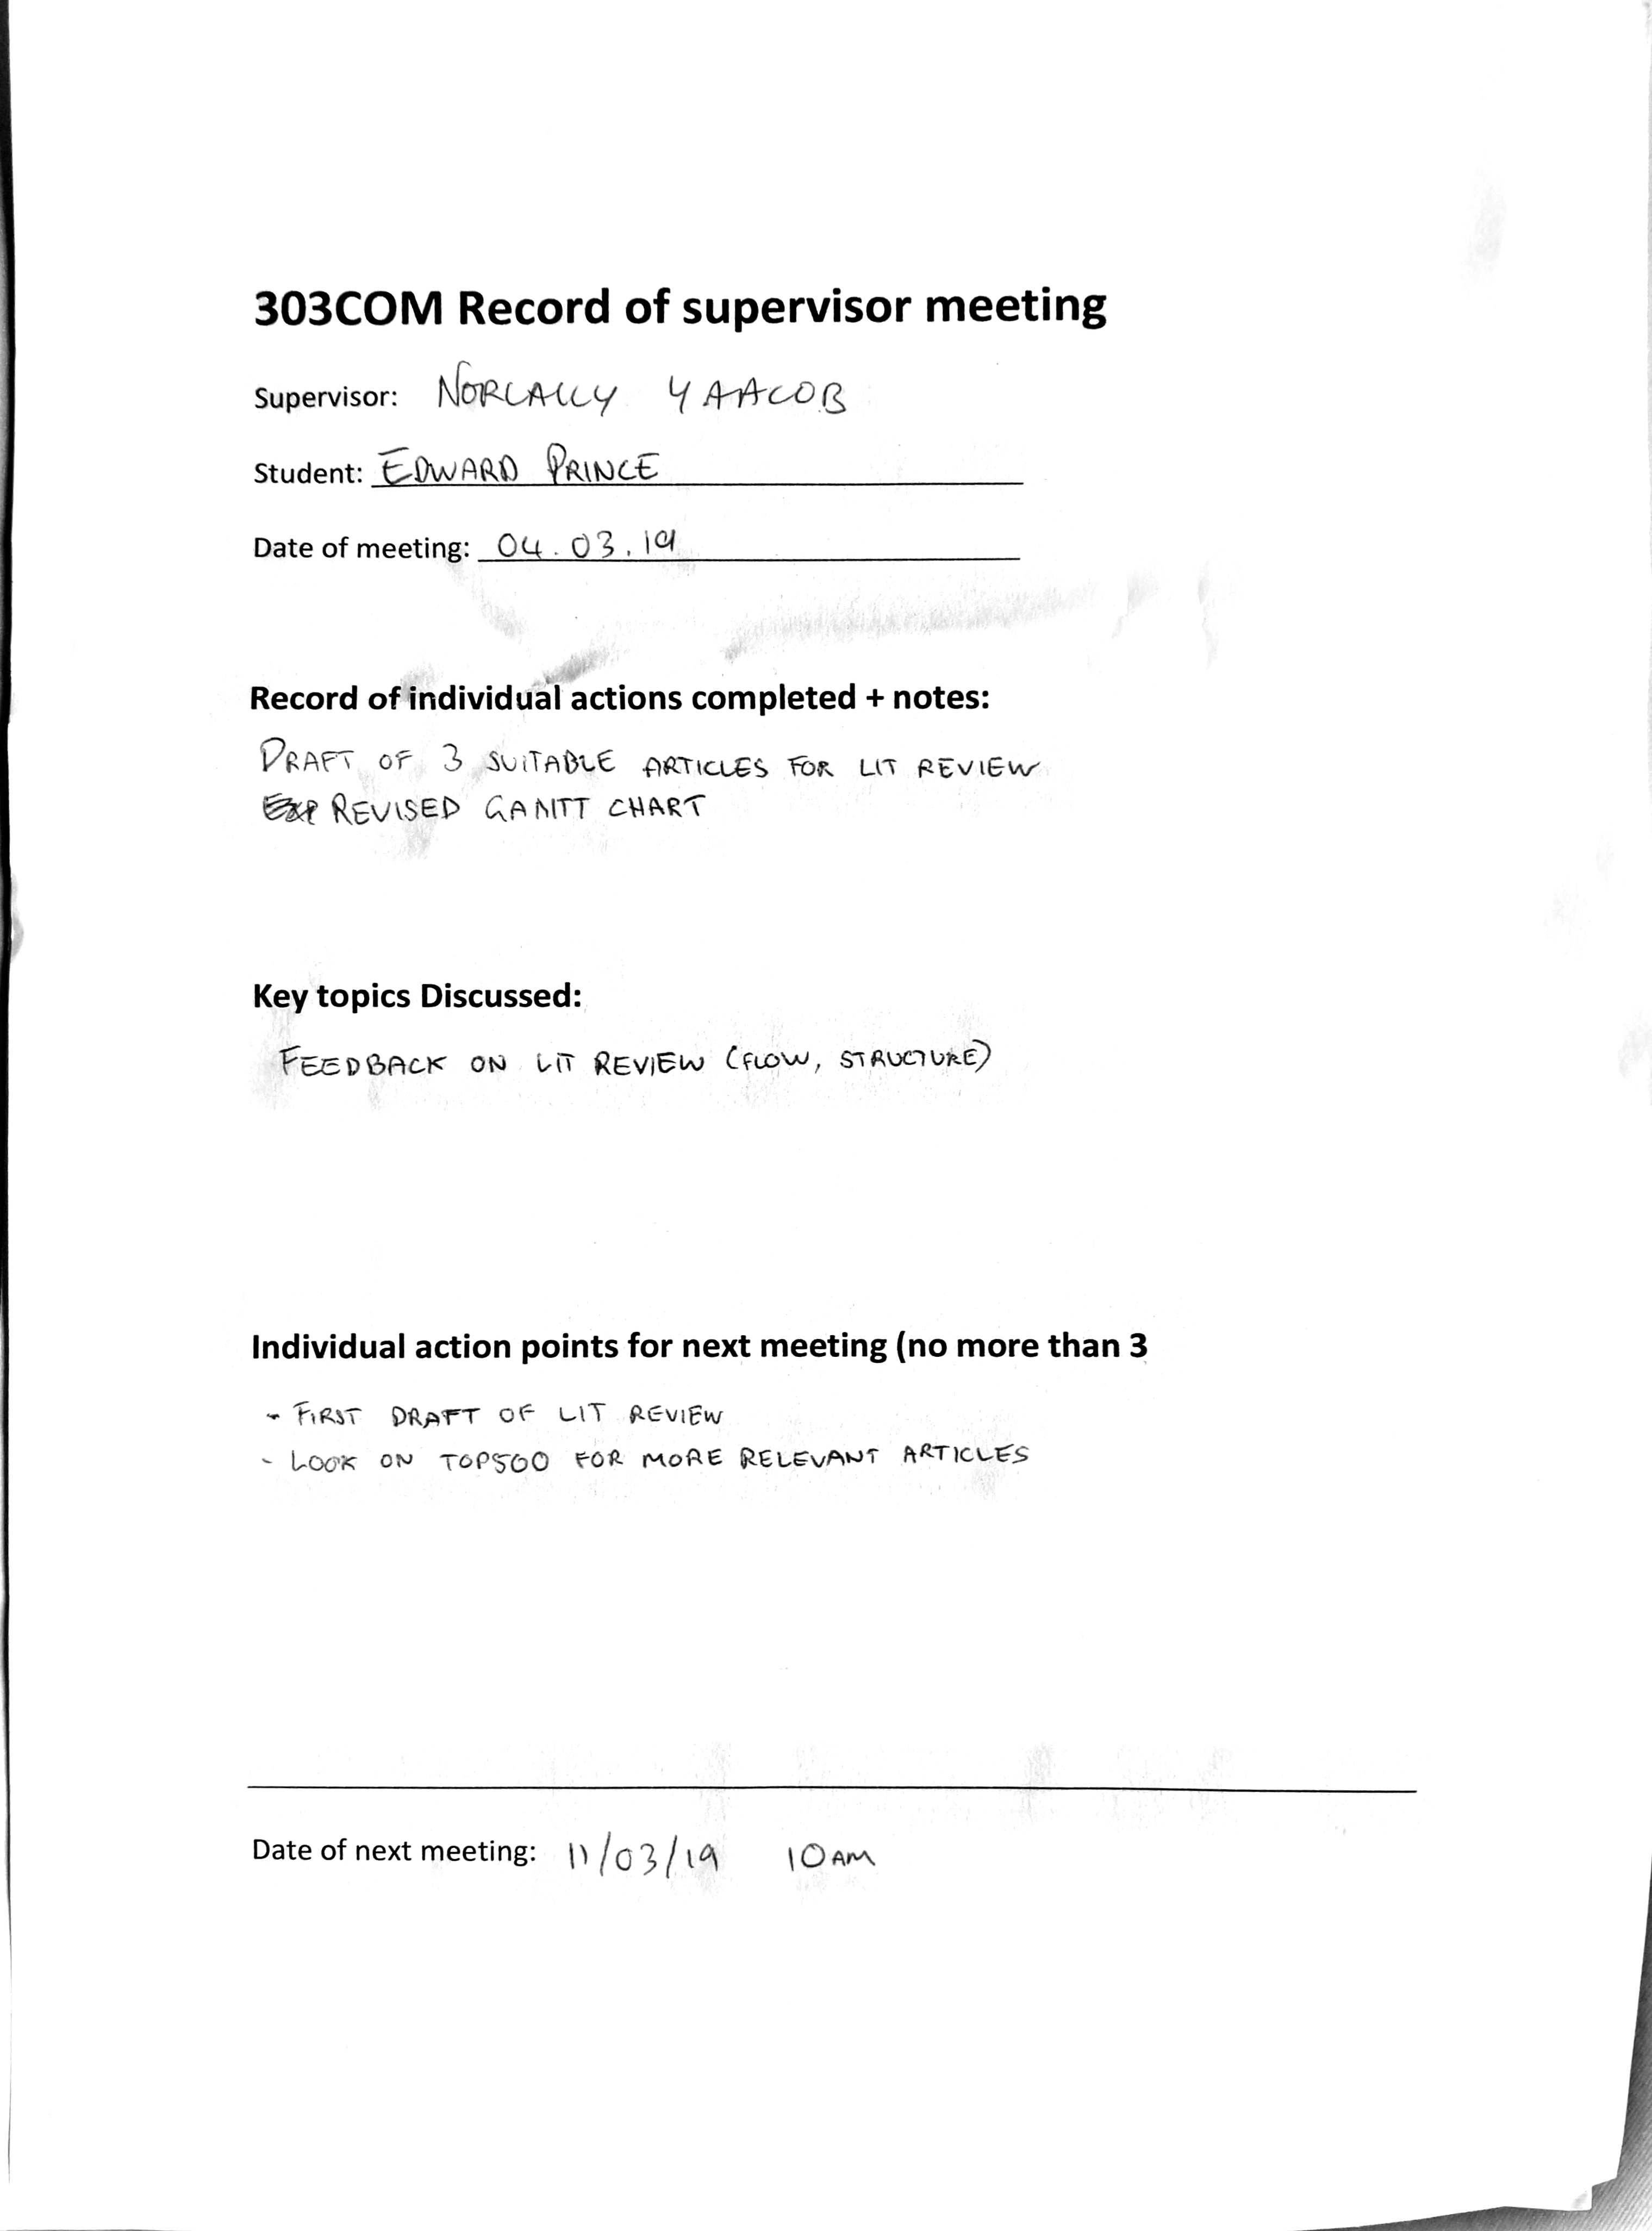 303COM Record of supervisor meeting
Supervisor: NORLALLY YAACOB
Student: EDWARD PRINCE
Date of meeting: 04.03.19
Record of individual actions completed + notes:
DRAFT OF 3 SUITABLE ARTICLES FOR LIT REVIEW
REVISED GANTT CHART
Key topics Discussed:
FEEDBACK ON LIT REVIEW (FLOW, STRUCTURE)
Individual action points for next meeting (no more than 3
- FIRST DRAFT OF LIT REVIEW
- LOOK ON TOP500 FOR MORE RELEVANT ARTICLES
Date of next meeting: 11/03/19 10AM